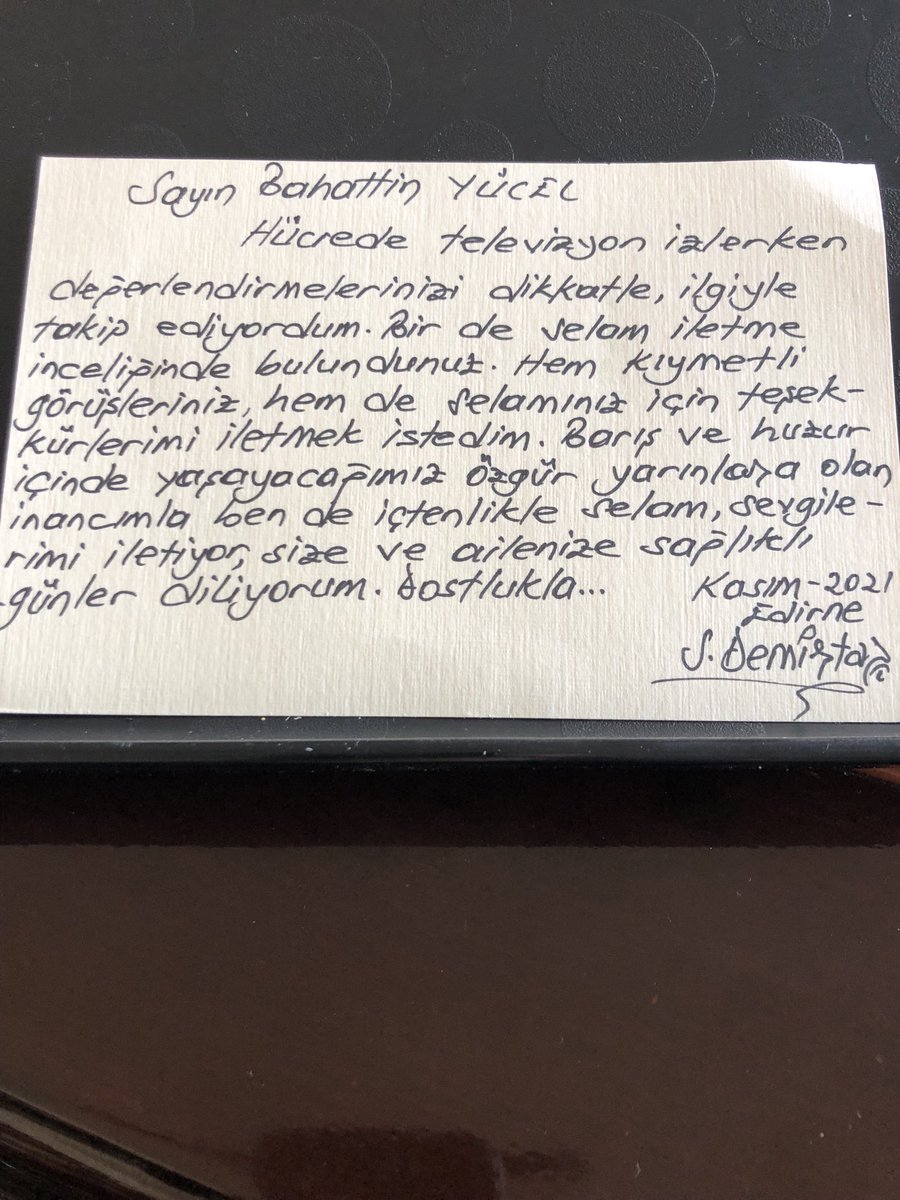 Sayın Bahattin YÜCEL
Hücrede televizyon izlerken
değerlendirmelerinizi dikkatle, ilgiyle
takip ediyordum. Bir de selam iletme
inceliğinde bulundunuz. Hem kıymetli
görüşleriniz, hem de selamınız için teşek-
kürlerimi iletmek istedim. Barış ve huzur
içinde yaşayacağımız özgür yarınlara olan
inancımla ben de içtenlikle selam, sevgile-
rimi iletiyor, size ve ailenize sağlıklı
günler diliyorum. Dostlukla...
Kasım-2021
Edirne
S. Demirtaş